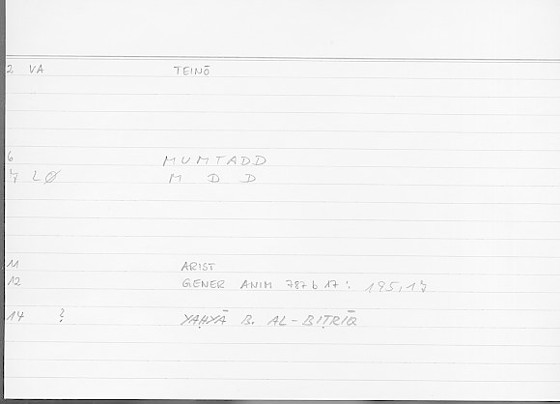 2 VA TEINŌ
6 MUMTADD
7 LØ M D D
11 ARIST
12 GENER ANIM 787 b 17: 195,17
14 ? YAḤYĀ B. AL-BIṬRĪQ